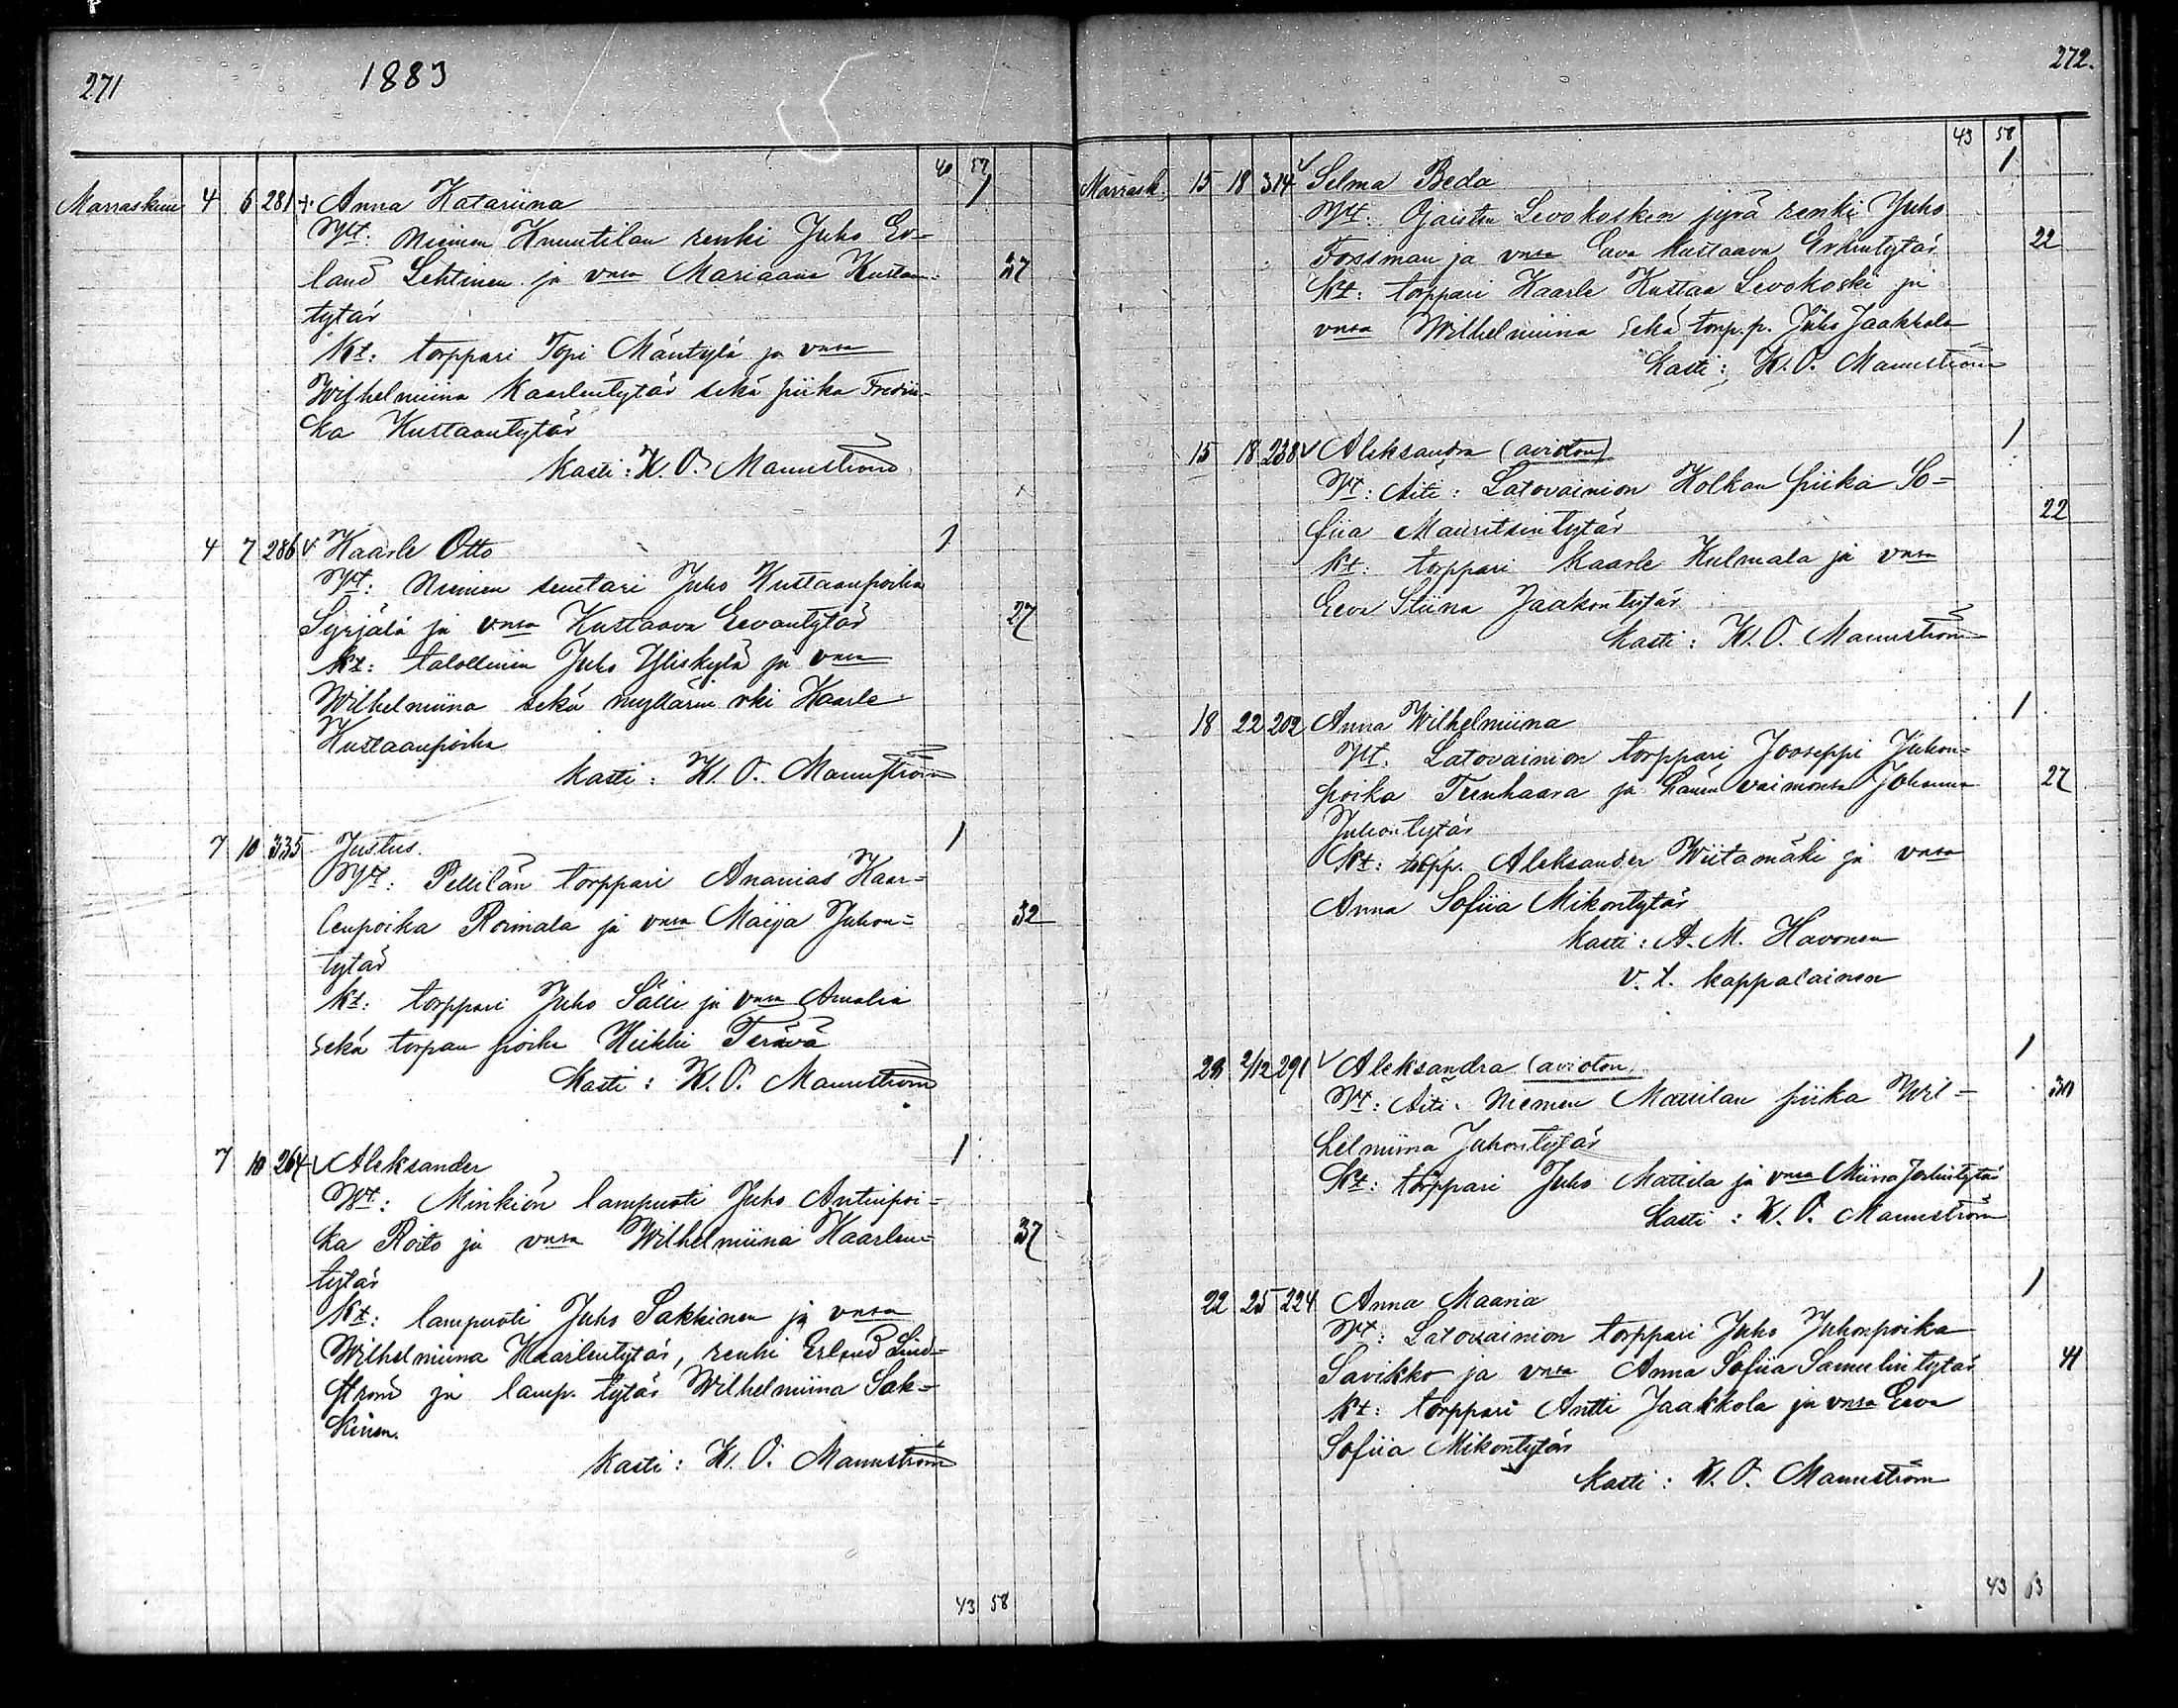 271
1883
40 57
Marraskuu 4 6 281 + Anna Katariina 1
Wt: Niemen Knuutilan renki Juho Er-
land Lehtinen ja vmsa Mariaana Kustaan- 37
tytär
Kt: torppari Topi Mäntylä ja vmsa
Wilhelmiina Kaarlentytär sekä piika Fredrii-
ka Kustaantytär
Kasti: K. O. Mannström
4 7 286 v Kaarle Otto 1
Wt: Niemen suutari Juho Kustaanpoika
Syrjälä ja vmsa Kustaava Eevantytär 27
Kt: talollinen Juho Yliskylä ja vmsa
Wilhelmiina sekä myllärin rki Kaarle
Kustaanpoika
Kasti: K. O. Mannström
7 10 335 Justus. 1
Wt: Pellilän torppari Ananias Kaar-
lenpoika Roimala ja vmsa Maija Juhon- 32
tytär
Kt: torppari Juho Sälli ja vmsa Amalia
sekä torpan poika Heikki Terävä
Kasti: K. O. Mannström
7 10 264 v Aleksander 1
Wt: Minkiön lampuoti Juho Antinpoi-
ka Roito ja vmsa Wilhelmiina Kaarlen- 37
tytär
Kt: lampuoti Juho Sakkinen ja vmsa
Wilhelmiina Kaarlentytär, renki Erland Lind-
ström ja lamp. tytär Wilhelmiina Sak-
kinen.
Kasti: K. O. Mannström
43 58
272.
43 58
Marrask. 15 18 314 v Selma Beda 1
Wt: Ojaisten Levokosken jyvä renki Juho
Forssman ja vmsa Eava Kustaava Erkintytär 22
Kt: torppari Kaarle Kustaa Levokoski ja
vmsa Wilhelmiina sekä torp. p. Juho Jaakkola
Kasti: K. O. Mannström
15 18 238 v Aleksandra (avioton) 1
Wt: Äiti: Latovainion Kolkan piika So-
fiia Mauritsintytär 22
Kt: torppari Kaarle Kulmala ja vmsa
Eeva Stiina Jaakontytär
Kasti: K. O. Mannström
18 22 202 Anna Wilhelmiina 1
Wt: Latovainion torppari Jooseppi Juhon-
poika Teenhaara ja hänen vaimonsa Johanna 27
Juhontytär
Kt: torpp. Aleksander Wiitamäki ja vmsa
Anna Sofiia Mikontytär
Kasti: A. M. Havonen
v. t. kappalainen
28 2/12 291 v Aleksandra (avioton) 1
Wt: Äiti: Niemen Mattilan piika Wil- 30
helmiina Juhontytär
Kt: torppari Juho Mattila ja vmsa Miina
Kasti: K. O. Mannström
22 25 224 Anna Maaria 1
Wt: Latovainion torppari Juho Juhonpoika
Savikko ja vmsa Anna Sofiia Samulintytär 41
Kt: torppari Antti Jaakkola ja vmsa Eeva
Sofiia Mikontytär
Kasti: K. O. Mannström
43 63